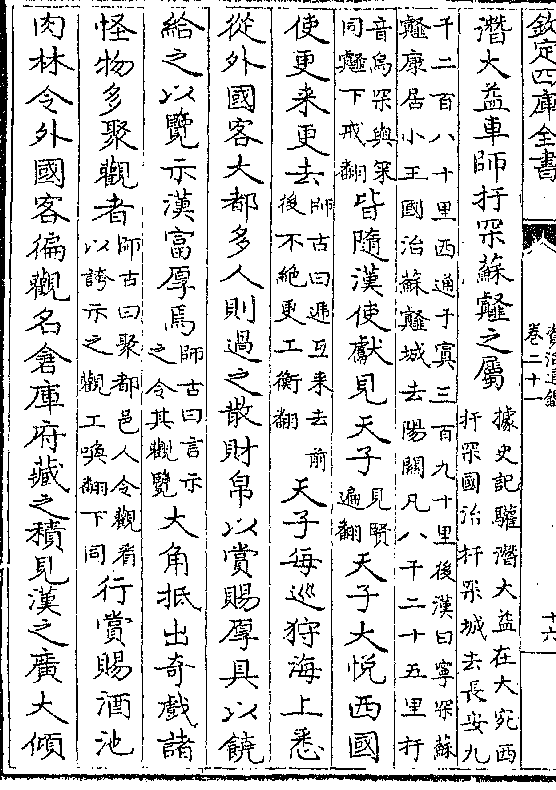 欽定四庫全書
資治通鑑
卷二十一
十六
潛大益車師扜罙蘇䪥之屬據史記驩潛大益在大宛西
扜罙國治扜罙城去長安九
千二百八十里西通于窴三百九十里後漢曰寧罙蘇
䪥康居小王國治蘇䪥城去陽關凡八千二十五里扜
音烏罙與冞
同䪥下戒翻皆隨漢使獻見天子見賢
遍翻天子大悅西國
使更來更去師古曰遞互來去前
後不絶更工衡翻天子每巡狩海上悉
從外國客大都多人則過之散財帛以賞賜厚具以饒
給之以覽示漢富厚焉師古曰言示
之令其觀覽大角抵出奇戲諸
怪物多聚觀者師古曰聚都邑人令觀看
以誇示之觀工喚翻下同行賞賜酒池
肉林令外國客徧觀名倉庫府藏之積見漢之廣大傾